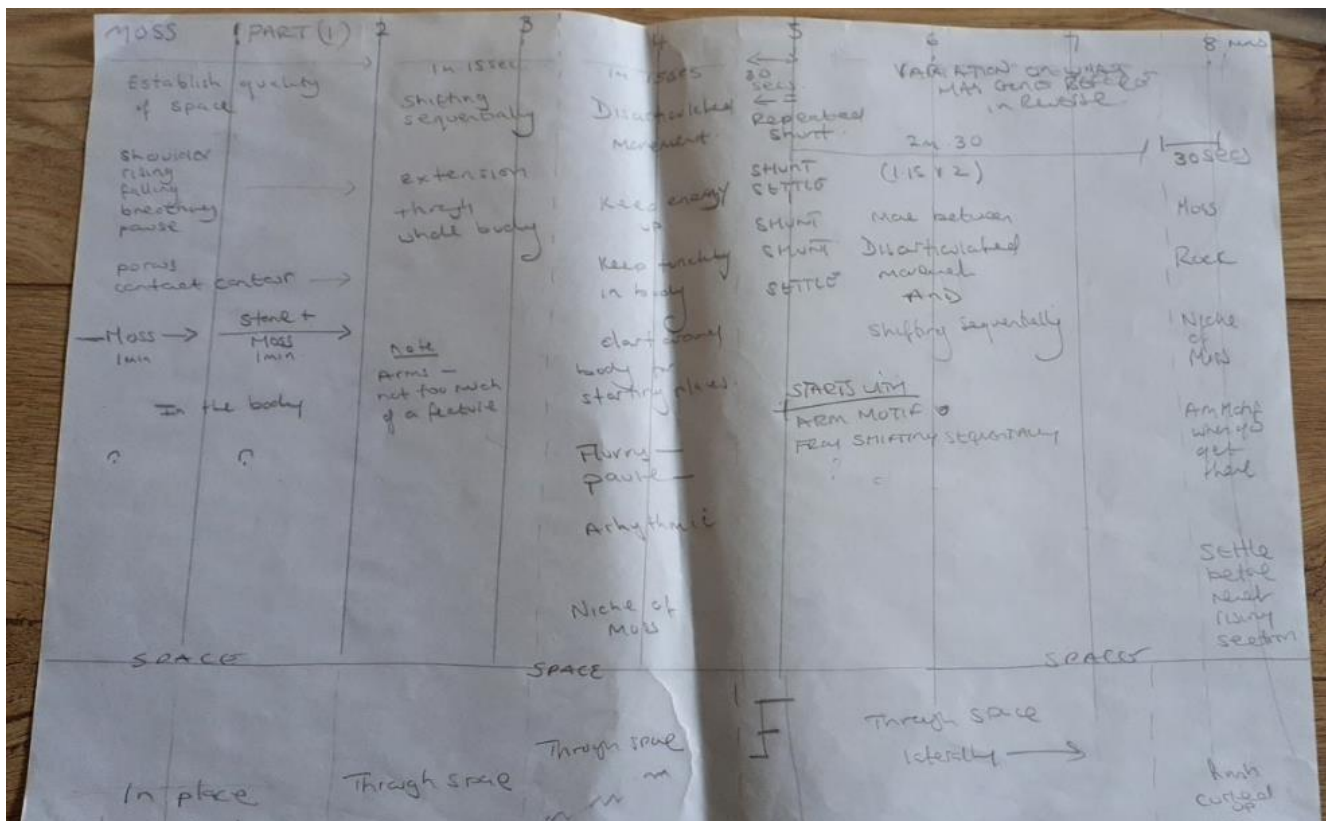 MOSS PART (1) 2 3 4 5 6 7 8 mins
Establish quality
of space
Shoulder
rising
falling
breathing
pause
porus
contact contour
Moss
1min
Stone +
Moss
1min
In the body
?
?
In 15 sec
Shifting
sequentially
extension
through
whole body
Note
Arms -
not too much
of a feature
In 15 secs
Disarticulated
Movement.
Keep energy
up
Keep
in body
body for
starting places.
Flurry -
pause -
Arhythmic
Niche of
Moss
30
secs
Repeated
Shunt.
SHUNT
SETTLE
SHUNT
SHUNT
SETTLE
VARIATION ON WHAT
HAS GONE BEFORE
in Reverse
2m.30
(1.15 x 2)
Move between
Disarticulated
movement
AND
Shifting sequentially
STARTS WITH
ARM MOTIF
FROM SHIFTING SEQUENTIALLY
30 SECS
Moss
Rock
Niche
of
Moss
Arm Motif
when you
get
there
Settle
before
next
rising
section
SPACE SPACE SPACE
In place
Through space
Through space
Through space
laterally
curled
up